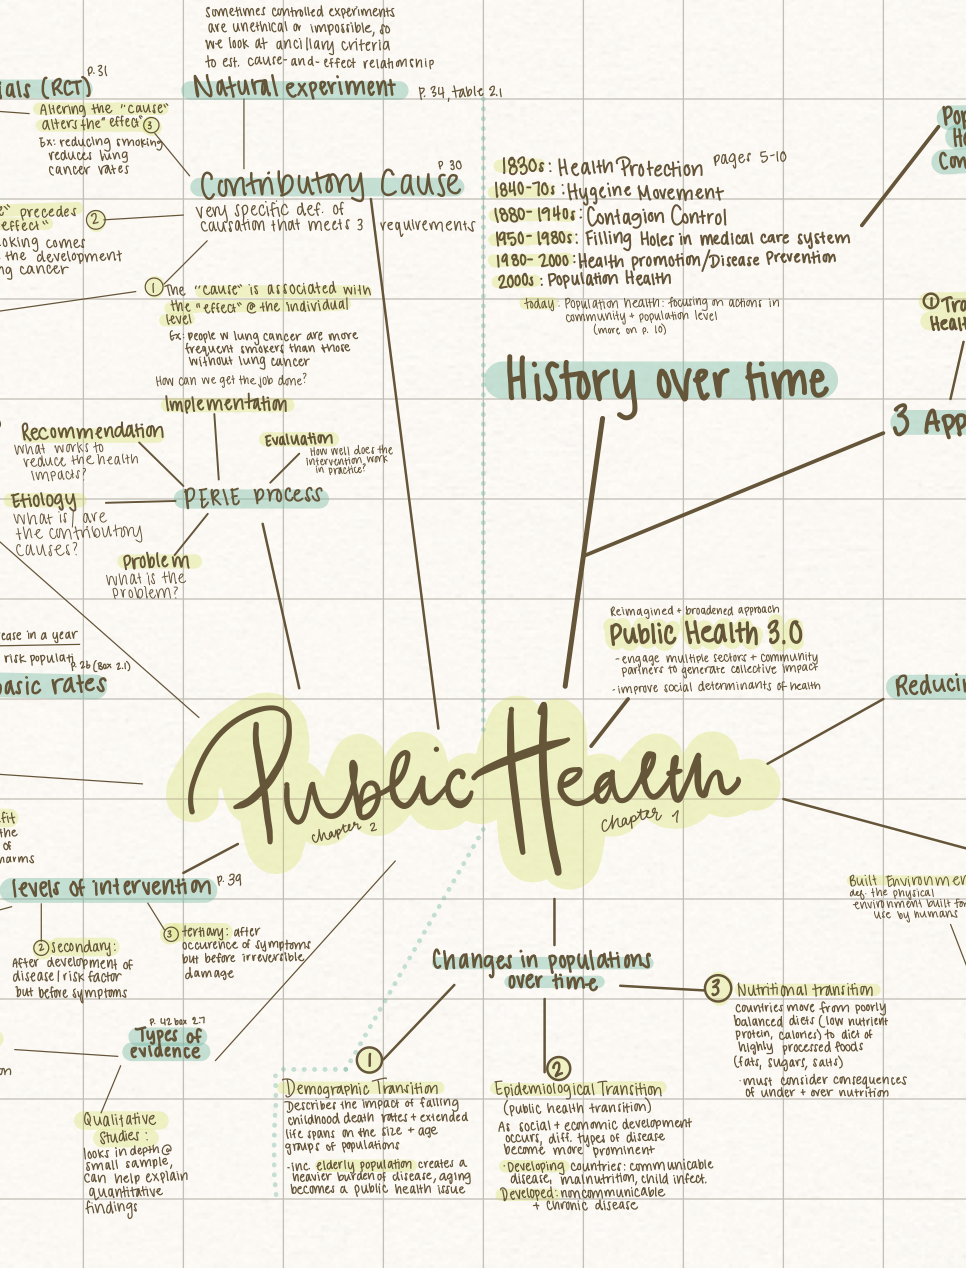 Sometimes controlled experiments
are unethical or impossible, so
we look at ancillary criteria
to est. cause-and-effect relationship
Natural experiment
p. 34, table 2.1
p. 31
ials (RCT)
Altering the "cause"
alters the "effect" 3
Ex: reducing smoking
reduces lung
cancer rates
p 30
Contributory Cause
very specific def. of
causation that meets 3 requirements
e" precedes
effect" 2
oking comes
the development
ng cancer
1 The "cause" is associated with
the "effect" @ the individual
level
Ex: people w lung cancer are more
frequent smokers than those
without lung cancer
How can we get the job done?
Implementation
Recommendation
What works to
reduce the health
impacts?
Evaluation
How well does the
intervention work
in practice?
Etiology
what is/are
the contributory
causes?
PERIE process
Problem
what is the
problem?
ease in a year
risk populati
p. 26 (Box 2.1)
basic rates
1830s: Health Protection pages 5-10
1840-70s: Hygeine Movement
1880-1940s: Contagion Control
1950-1980s: Filling Holes in medical care system
1980-2000: Health promotion/Disease Prevention
2000s: Population Health
today: Population health: focusing on actions in
community + population level
(more on p. 10)
History over time
Pop
He
Con
1 Tra
Healt
3 App
Reimagined + broadened approach
Public Health 3.0
- engage multiple sectors + community
partners to generate collective impact
- improve social determinants of health
Reducin
Public Health
chapter 2
chapter 1
fit
the
of
harms
levels of intervention p. 39
2 secondary:
After development of
disease/risk factor
but before symptoms
3 tertiary: after
occurence of symptoms
but before irreversible
damage
p. 42 box 2.7
Types of
evidence
on
Qualitative
studies:
looks in depth @
small sample,
can help explain
quantitative
findings
Built Environmen
def: the physical
environment built for
use by humans
Changes in populations
over time
1
Demographic Transition
Describes the impact of falling
childhood death rates + extended
life spans on the size + age
groups of populations
-inc. elderly population creates a
heavier burden of disease, aging
becomes a public health issue
2
Epidemiological Transition
(public health transition)
As social + economic development
occurs, diff. types of disease
become more prominent
·Developing countries: communicable
disease, malnutrition, child infect.
Developed: noncommunicable
+ chronic disease
3 Nutritional transition
countries move from poorly
balanced diets (low nutrient
protein, calories) to diet of
highly processed foods
(fats, sugars, salts)
·must consider consequences
of under + over nutrition